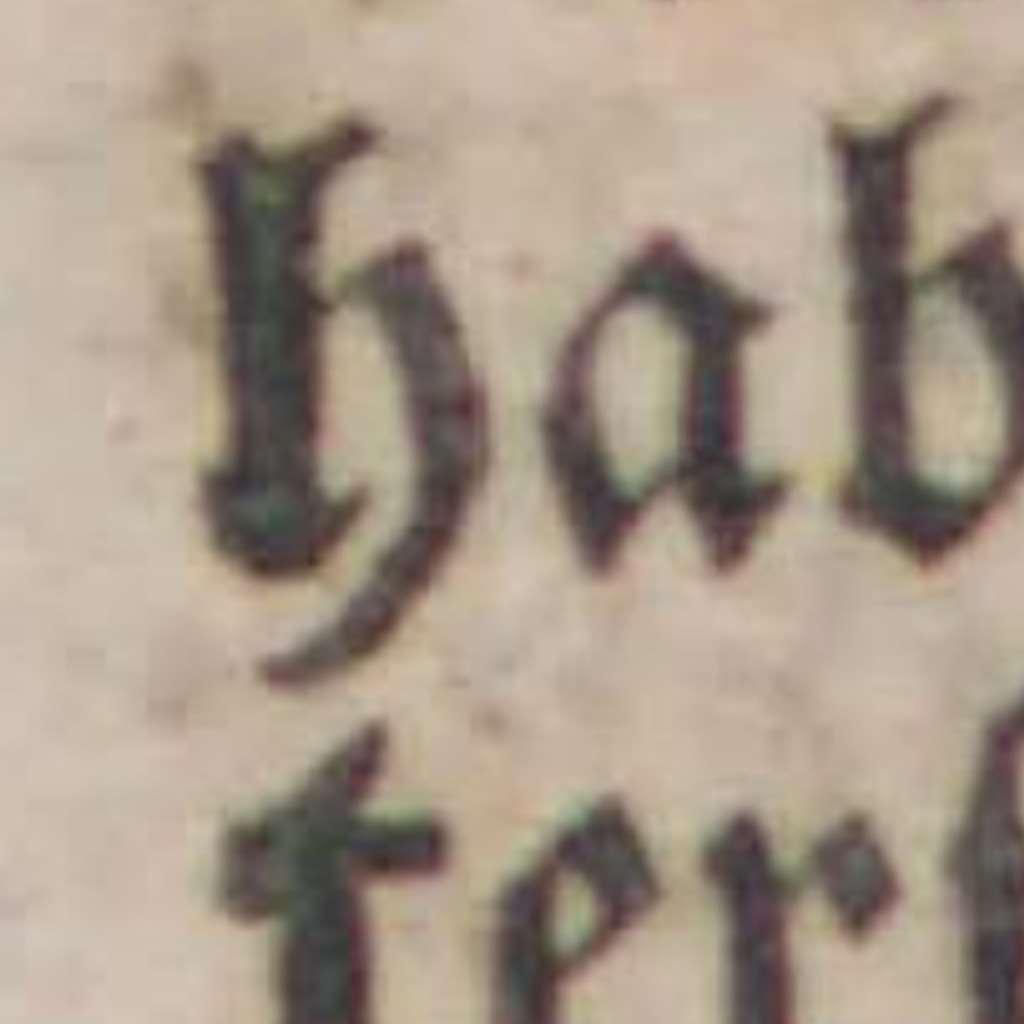 hab
ter